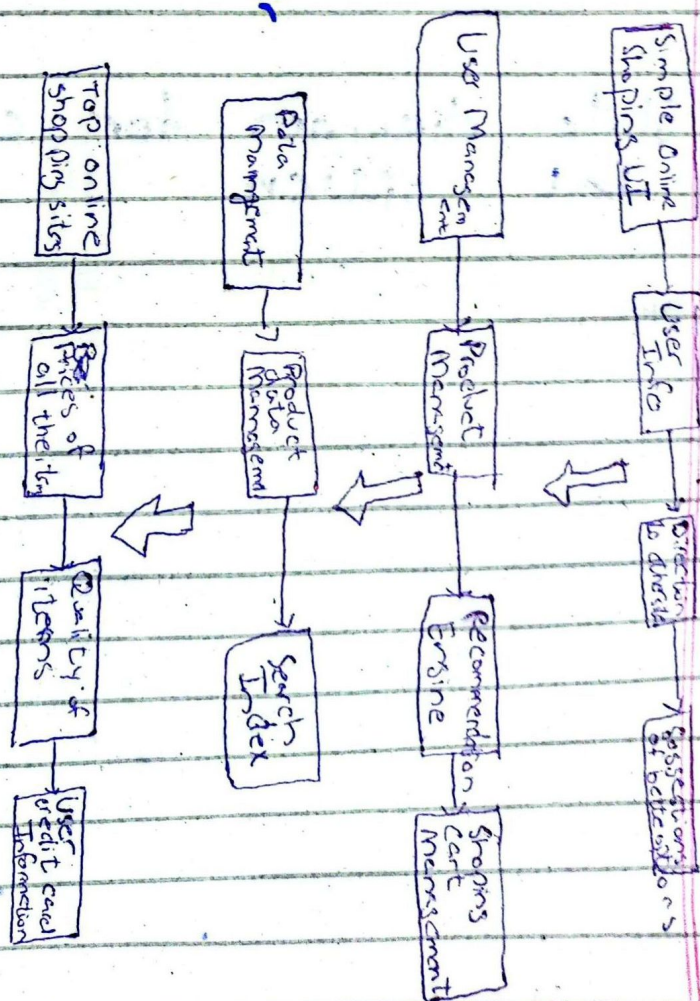 Simple Online
Shoping UI
User
Info
Direction
to
of better
User Managem
ent
Product
Managemt
Recommendation
Engine
Shoping
Cart
Management
Data
Product
data
Search
Index
Top online
shopping sites
Prices of
all the
Quality of
items
User
credit card
Information